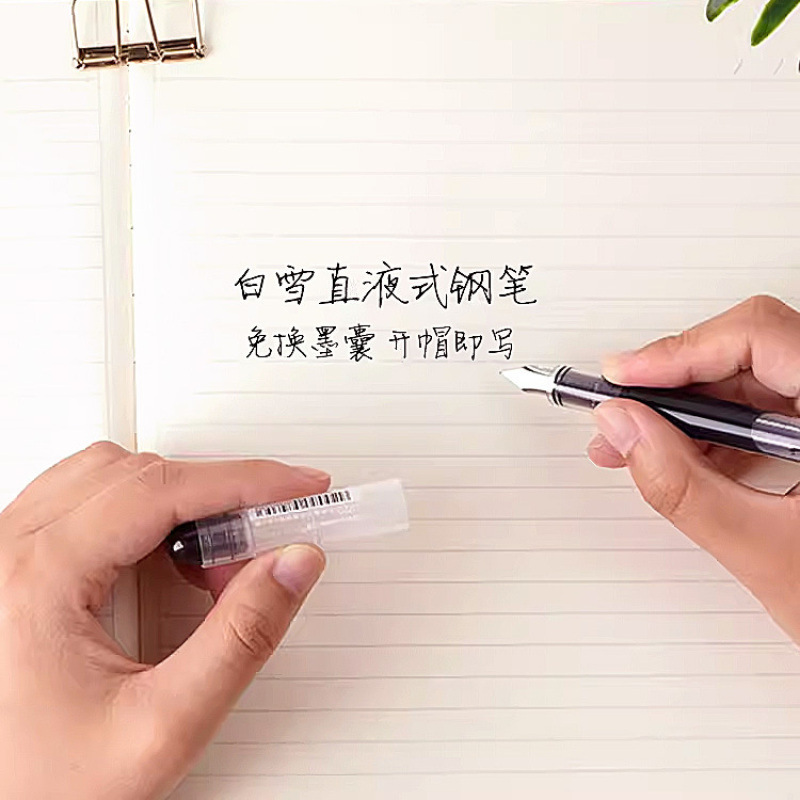 白雪直液式钢笔
免换墨囊 开帽即写